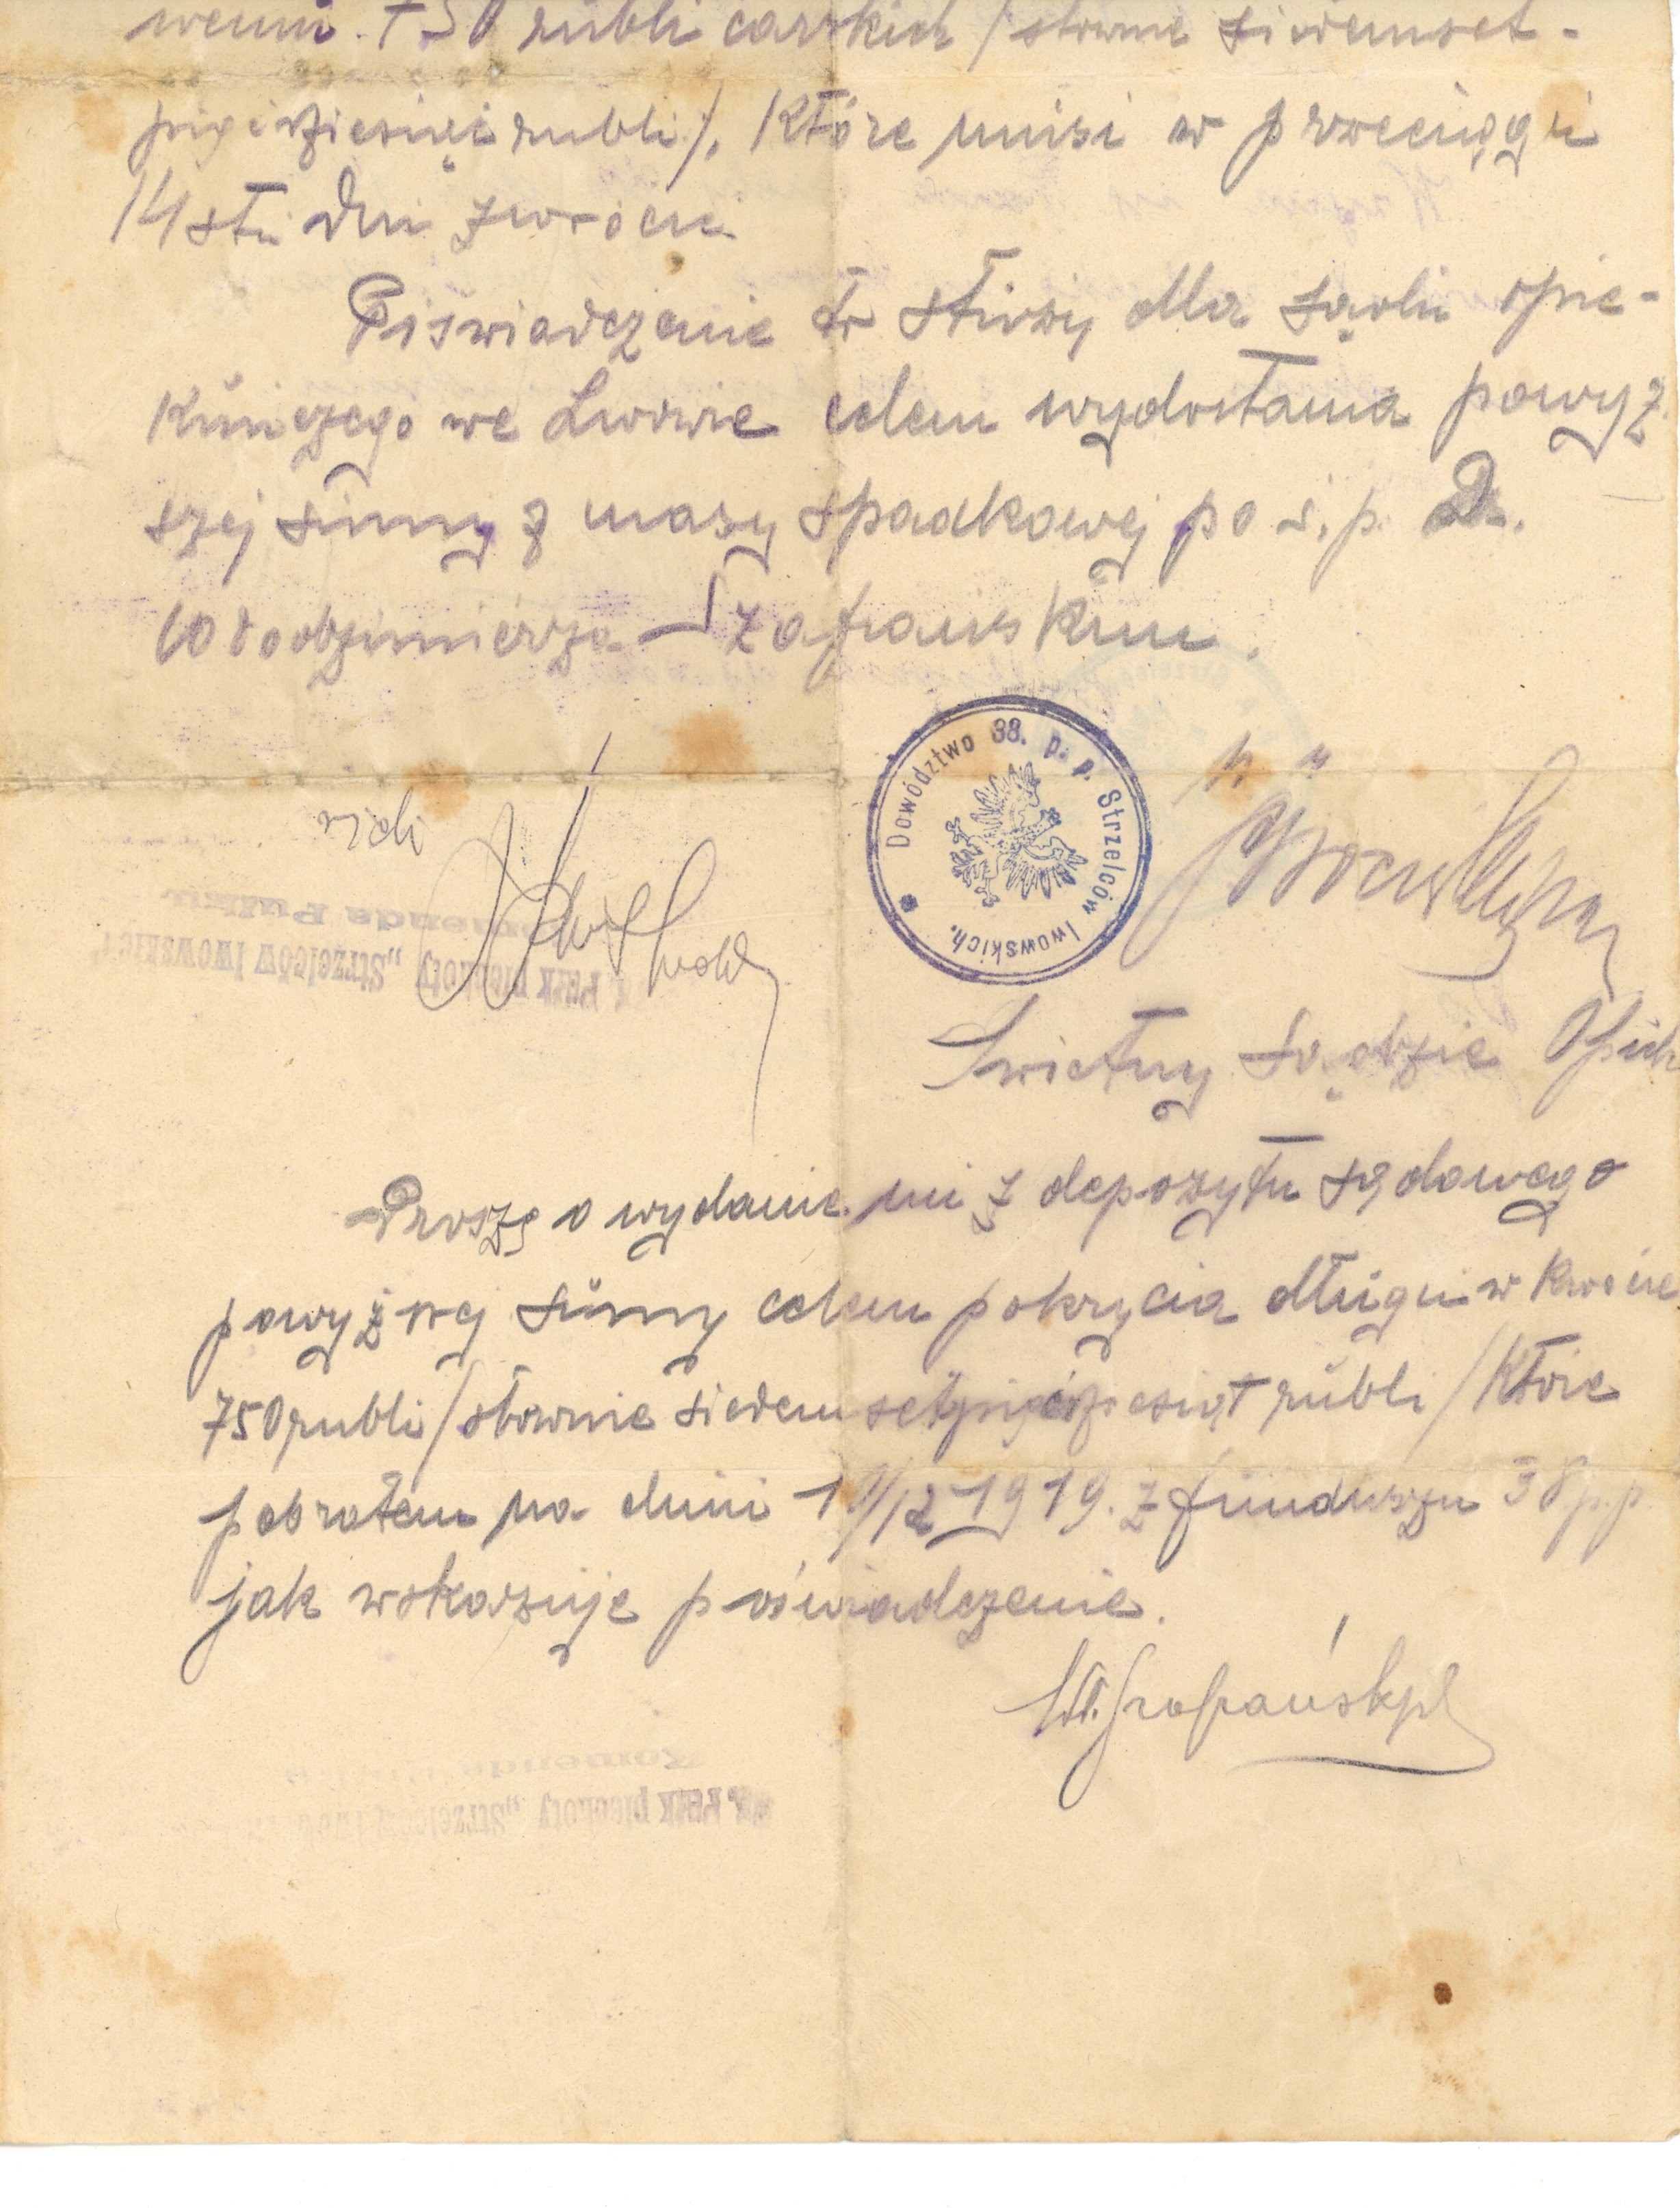 750 rubli carskich / słownie siedemset-
pięćdziesiąt rubli /, które musi w przeciągu
14stu dni zwrócić.
Poświadczenie to służy dla sądu opie-
kuńczego we Lwowie celem wydostania powyż-
szej sumy z masy spadkowej po ś. p. Dr.
Włodzimierzu Szafrańskim.
Dowództwo 38. p. p. Strzelców lwowskich.
vidi
Komenda Pułku
pułk piechoty „Strzelców lwowskich"
Świetny Sądzie Opiek
Proszę o wydanie mi z depozytu sądowego
powyższej sumy celem pokrycia długu w kwocie
750 rubli / słownie siedemsetpięćdziesiąt rubli / które
pobrałem na dniu 1919. z funduszu 38 p.p.
jak wskazuje poświadczenie.
Szafrański
pułk piechoty „Strzelców
Komenda